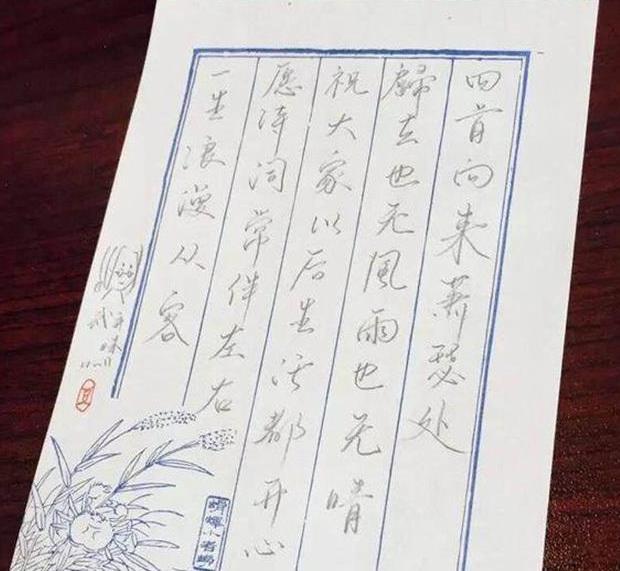 回首向来萧瑟处
歸去也无風雨也无晴
祝大家以后生活都开心
愿诗词常伴左右
一生浪漫从容